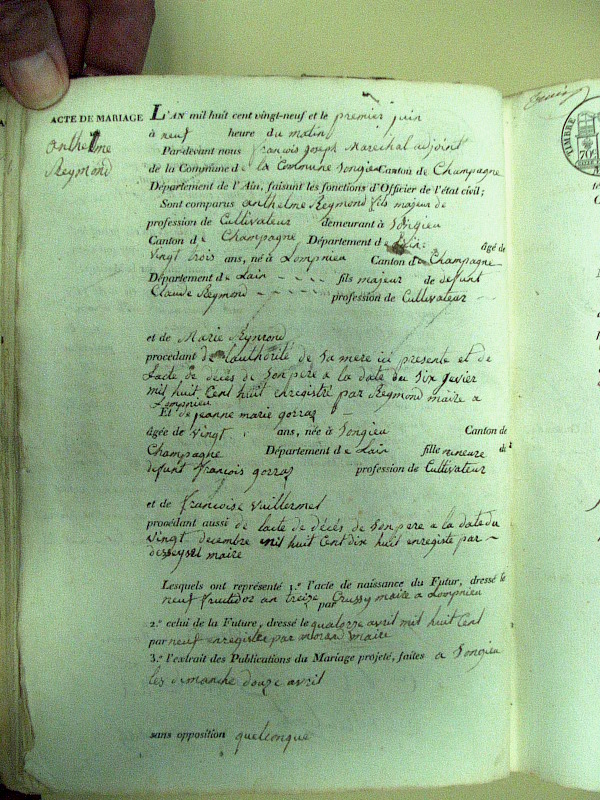 ACTE DE MARIAGE
anthelme
Reymond
L'AN mil huit cent vingt-neuf et le premier juin
à neuf heure du matin
Par-devant nous francois joseph Marechal adjoint
de la Commune de la Commune Songieu Canton de Champagne
Département de l'Ain, faisant les fonctions d'Officier de l'état civil;
Sont comparus anthelme Reymond fils majeur de
profession de Cultivateur demeurant à Songieu
Canton de Champagne Département de Lain
âgé de
vingt trois ans, né à Lompnieu Canton de Champagne
Département de Lain fils majeur de defunt
Claude Reymond profession de Cultivateur
et de Marie Reymond
procédant de lauthorité de Sa mere ici presente et de
Lacte de décès de Son pere a la date du Six Jevier
mil huit Cent huit enregistré par Reymond maire a
Lompnieu
Et de jeanne marie gorraz
âgée de vingt ans, née à Songieu Canton de
Champagne Département de Lain fille mineure de
defunt francois gorraz profession de Cultivateur
et de francoise vuillermet
procédant aussi de lacte de décés de Son pere a la date du
vingt decembre mil huit Cent dix huit enregistre par
desseysel maire
Lesquels ont représenté 1.º l'acte de naissance du Futur, dressé le
neuf fructidor an treize par Grussy maire a Lompnieu
2.º celui de la Future, dressé le quatorze avril mil huit Cent
par neuf enregistre par morand maire
3.º l'extrait des Publications du Mariage projeté, faites a Songieu
les dimanche douze avril
sans opposition quelconque
TIMBRE
70